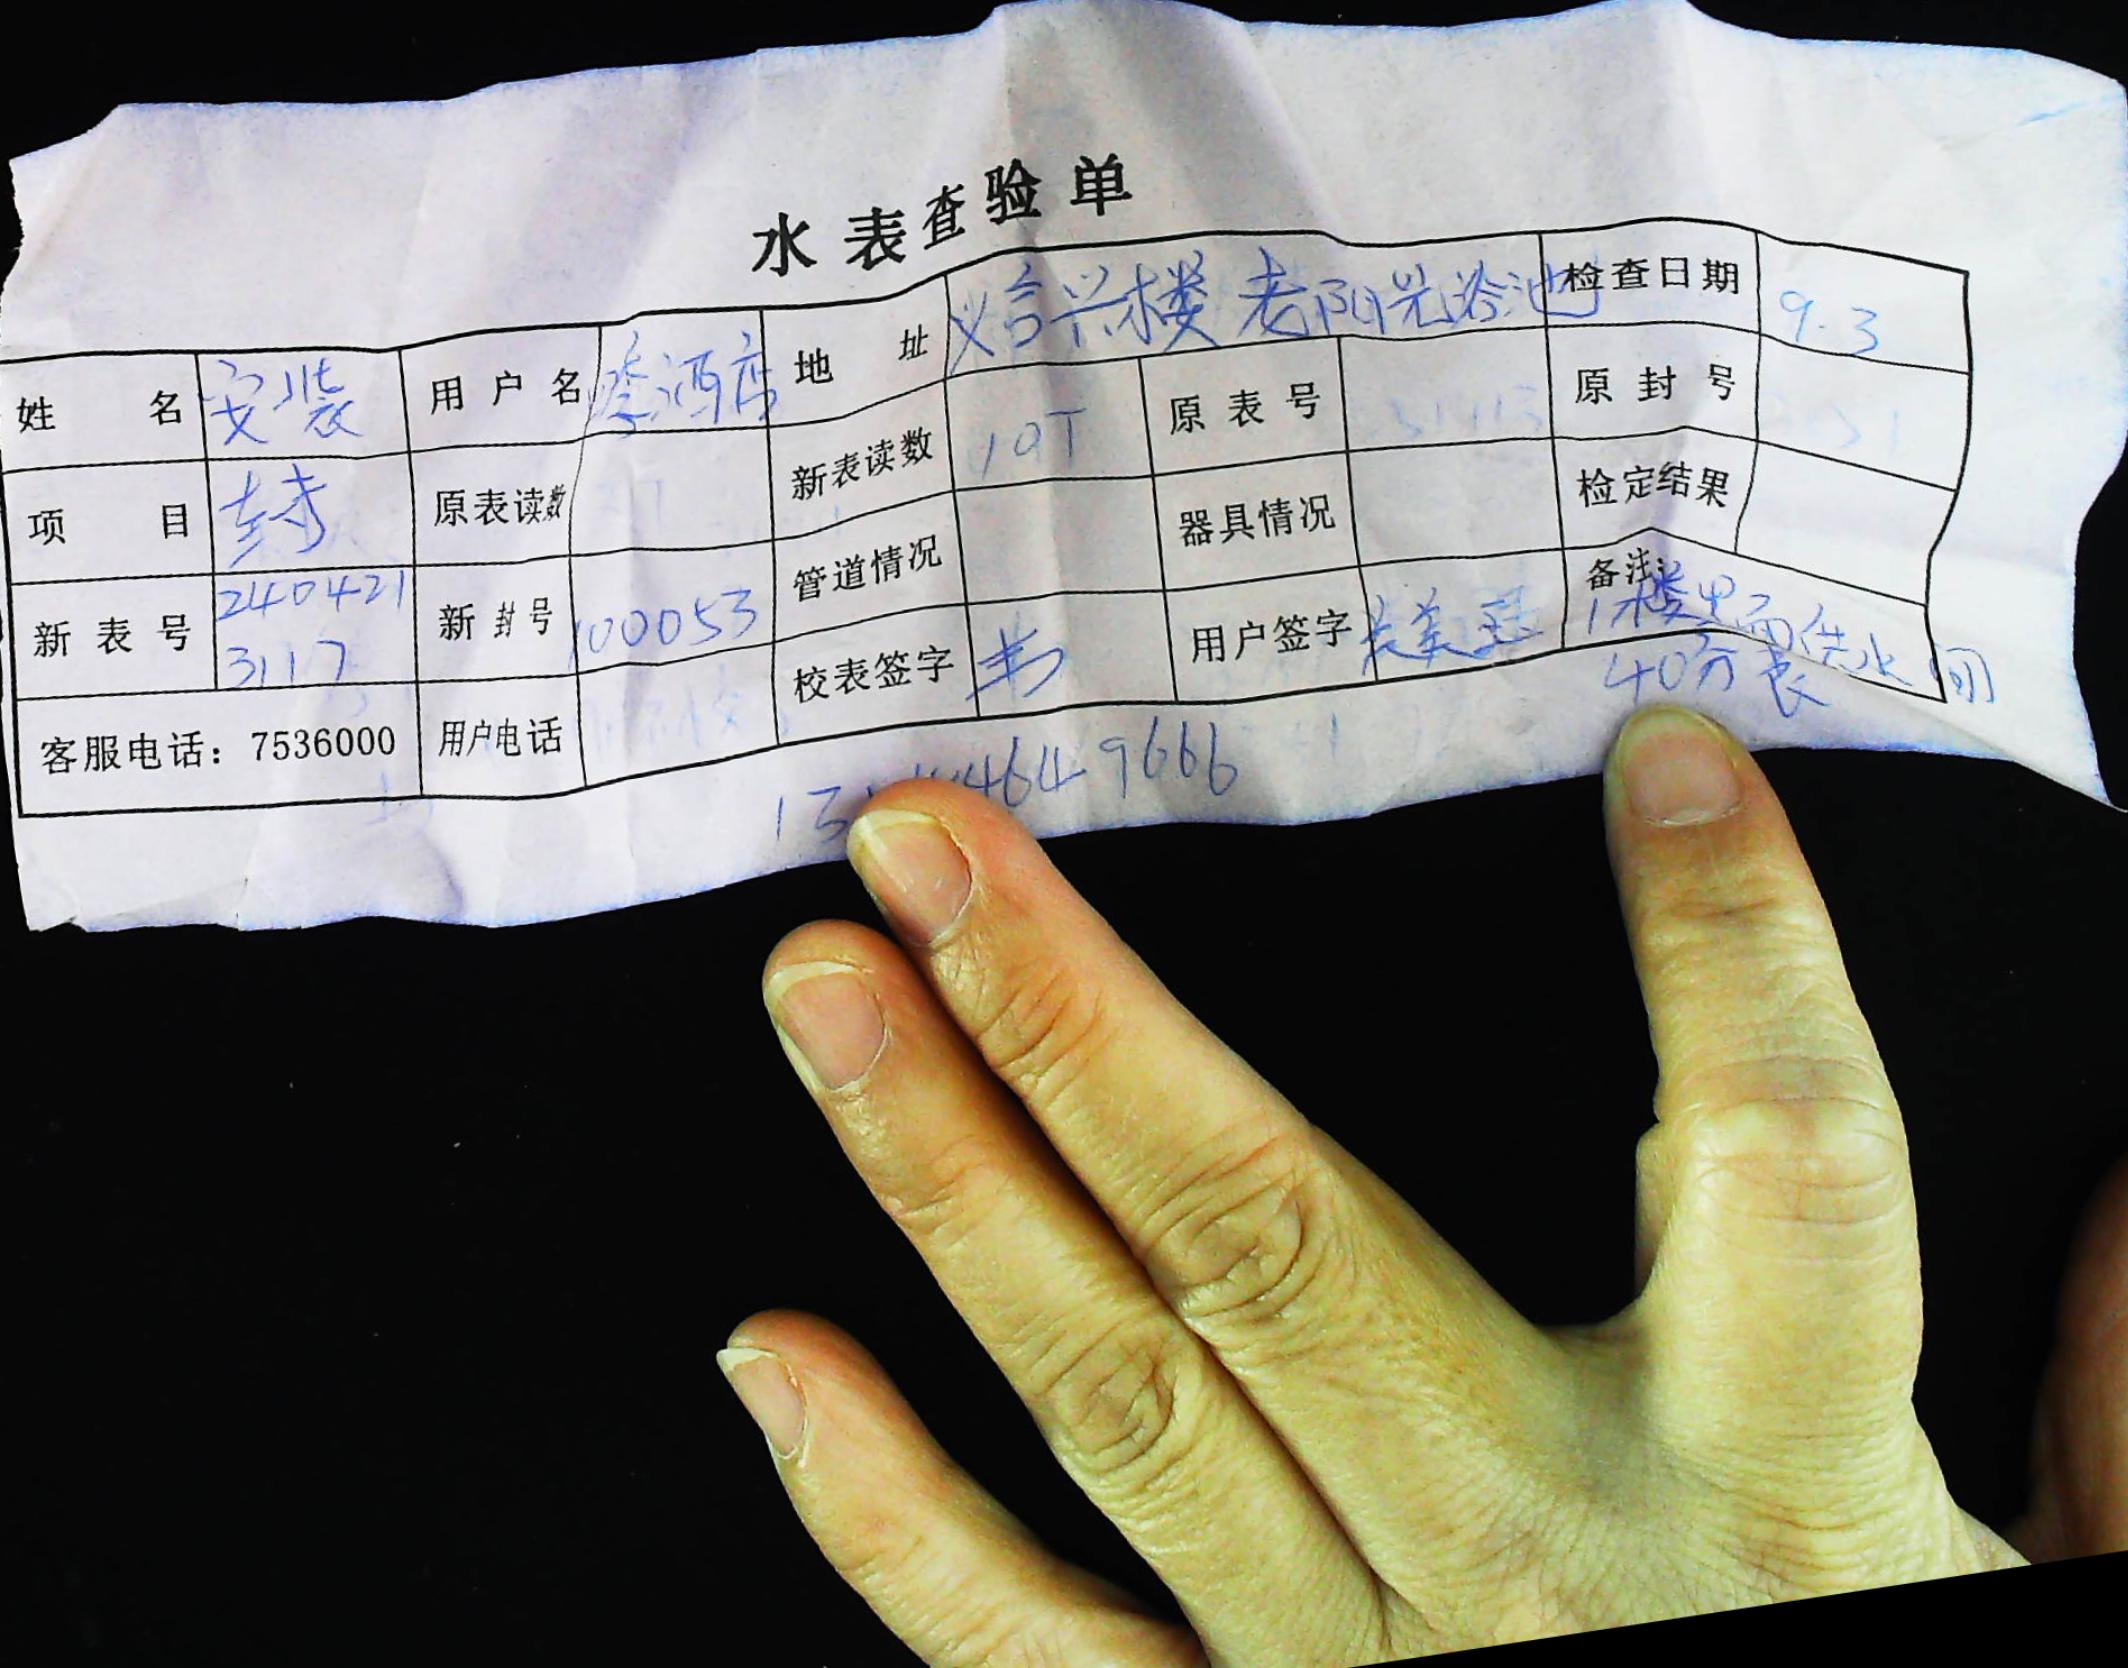 水表查验单
姓名 安装 用户名 酒店 地址 义合兴楼 老阳光浴池 检查日期 9.3
项目 新表读数 10T 原表号 原封号
原表读数 管道情况 器具情况 检定结果
新表号 2404213117 新封号 100053 校表签字 用户签字 备注: 1楼 供水间
40分表
客服电话: 7536000 用户电话
4649666